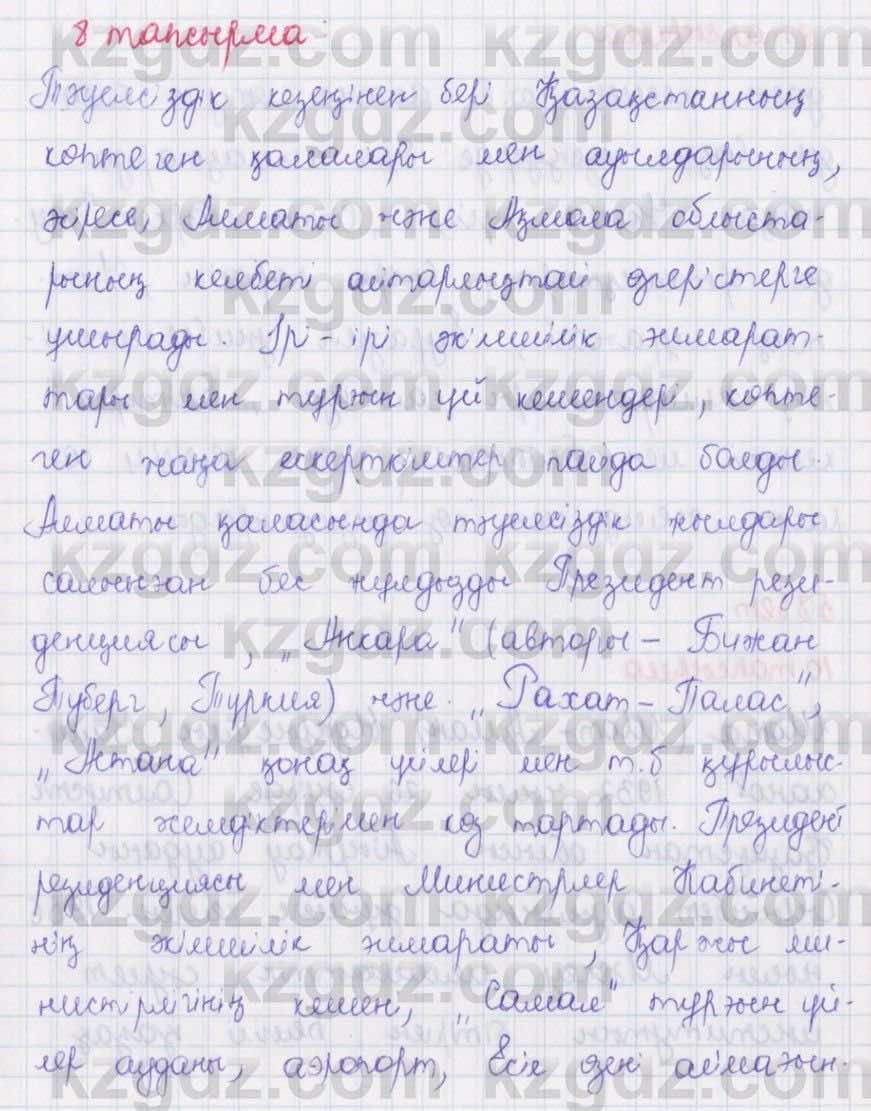 8 тапсырма
Тәуелсіздік кезеңінен бері Қазақстанның
көптеген қалалары мен ауылдарының,
әсіресе, Алматы және Ақмола облыста-
рының келбеті айтарлықтай өзгерістерге
ұшырады. Ірі-ірі әкімшілік ғимарат-
тары мен тұрғын үй кешендері, көпте-
ген жаңа ескерткіштер пайда болды.
Алматы қаласында тәуелсіздік жылдары
салынған бес жұлдызды Президент рези-
денциясы, „Анкара" (авторы – Бижан
Туберг, Түркия) және „Рахат – Палас",
„Астана" қонақ үйлері мен т.б құрылыс-
тар әсемдіктерімен көз тартады. Президент
резиденциясы мен Министрлер Кабинеті-
нің әкімшілік ғимараты, Қаржы ми-
нистрлігінің кешен, „Самал" тұрғын үй-
лер ауданы, аэропорт, Есіл өзені аймағын-